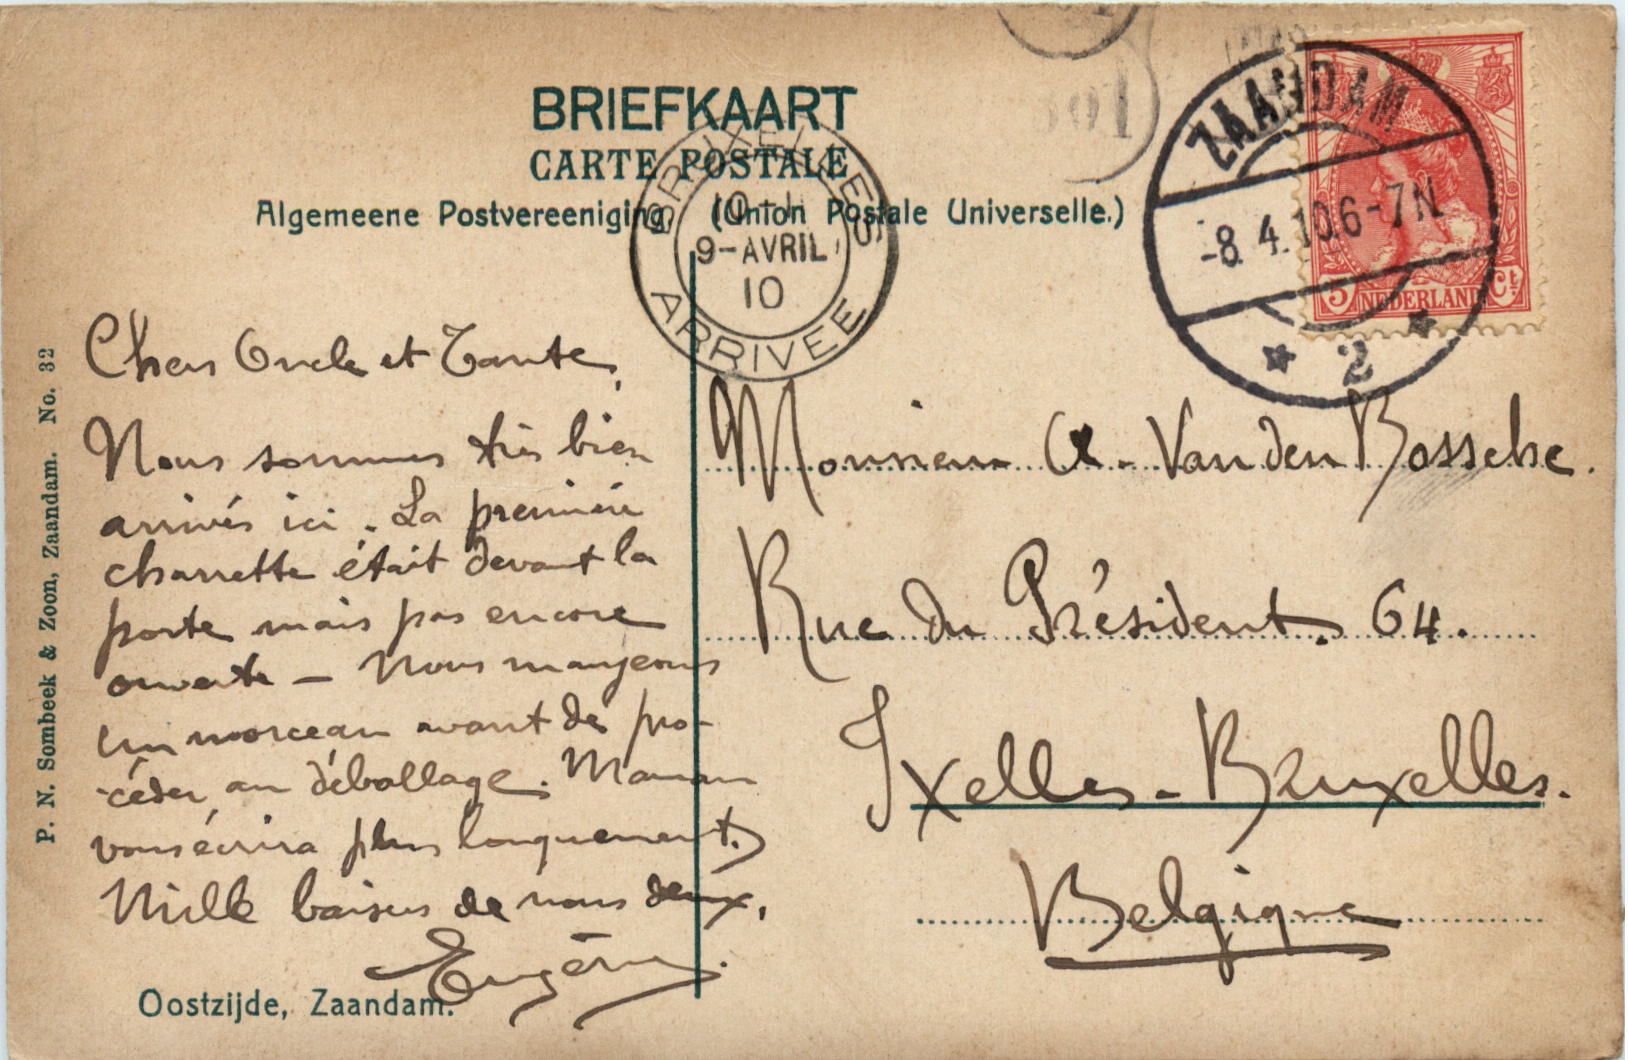 BRIEFKAART
CARTE POSTALE
Algemeene Postvereeniging (Union Postale Universelle.)
BRUXELLES
9-AVRIL
10
ARRIVEE
ZAANDAM
-8.4.10.6-7N
2
5 NEDERLAND Ct.
P. N. Sombeek & Zoon, Zaandam. No. 32
Chers Oncle et Tante,
Nous sommes très bien
arrivés ici. La première
charrette était devant la
porte mais pas encore
ouverte — Nous mangeons
un morceau avant de pro-
céder au déballage. Maman
vous écrira plus longuement.
Mille baisers de nous deux.
Monsieur A. Van den Bossche.
Rue du Président. 64.
Ixelles - Bruxelles.
Belgique
Oostzijde, Zaandam.